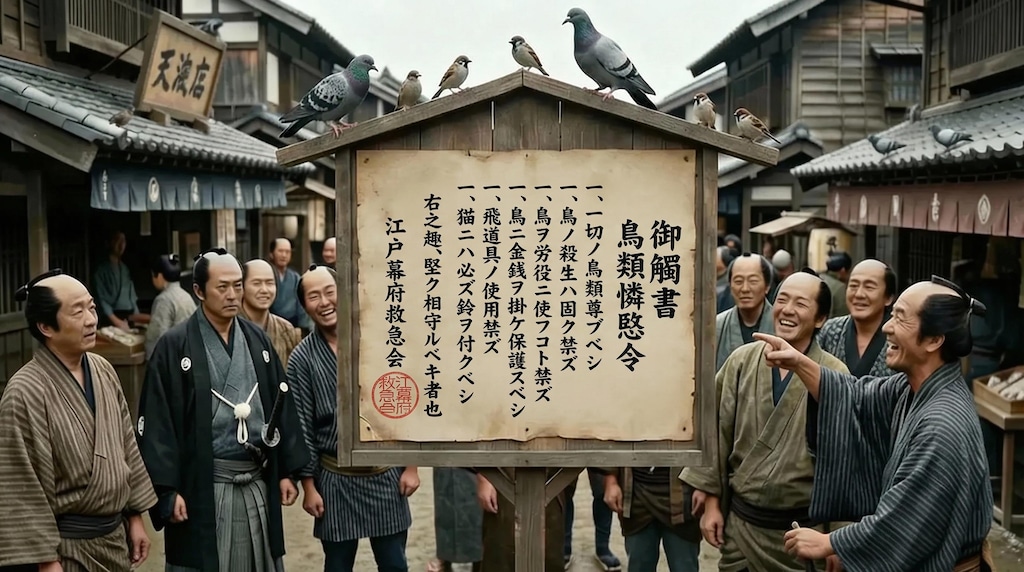 御觸書
鳥類憐愍令
一、一切ノ鳥類尊ブベシ
一、鳥ノ殺生ハ固ク禁ズ
一、鳥ヲ労役ニ使フコト禁ズ
一、鳥ニ金銭ヲ掛ケ保護スベシ
一、飛道具ノ使用禁ズ
一、猫ニハ必ズ鈴ヲ付クベシ
右之趣、堅ク相守ルベキ者也
江戸幕府救急会